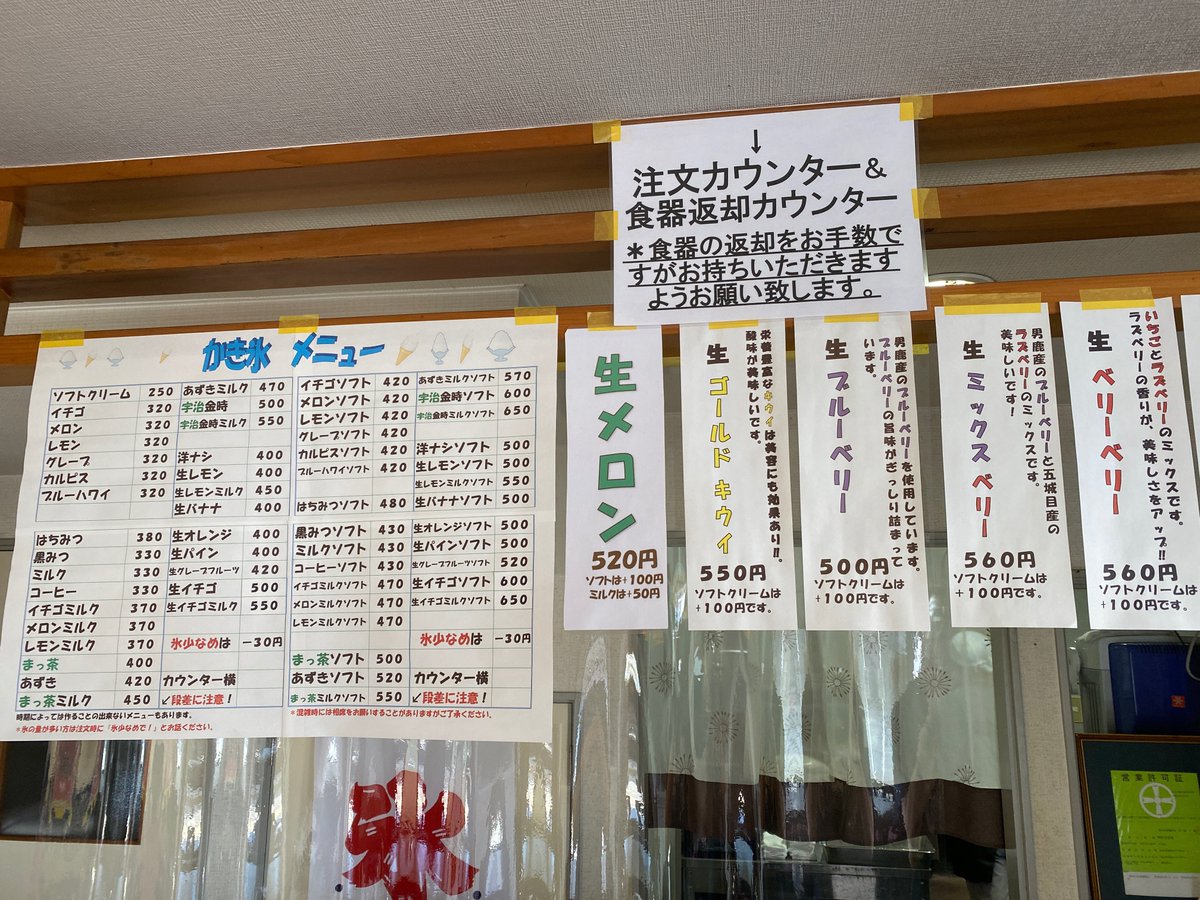 ↓
注文カウンター&
食器返却カウンター
＊食器の返却をお手数で
すがお持ちいただきます
ようお願い致します。
かき氷 メニュー
ソフトクリーム 250 あずきミルク 470 イチゴソフト 420 あずきミルクソフト 570
イチゴ 320 宇治金時 500 メロンソフト 420 宇治金時ソフト 600
メロン 320 宇治金時ミルク 550 レモンソフト 420 宇治金時ミルクソフト 650
レモン 320 グレープソフト 420
グレープ 320 洋ナシ 400 カルピスソフト 420 洋ナシソフト 500
カルピス 320 生レモン 400 ブルーハワイソフト 420 生レモンソフト 500
ブルーハワイ 320 生レモンミルク 450 生レモンミルクソフト 550
生バナナ 400 はちみつソフト 480 生バナナソフト 500
はちみつ 380 生オレンジ 400 黒みつソフト 430 生オレンジソフト 500
黒みつ 330 生パイン 400 ミルクソフト 430 生パインソフト 500
ミルク 330 生グレープフルーツ 420 コーヒーソフト 430 生グレープフルーツソフト 520
コーヒー 330 生イチゴ 500 イチゴミルクソフト 470 生イチゴソフト 600
イチゴミルク 370 生イチゴミルク 550 メロンミルクソフト 470 生イチゴミルクソフト 650
メロンミルク 370 レモンミルクソフト 470
レモンミルク 370 氷少なめは －30円 氷少なめは －30円
まっ茶 400 まっ茶ソフト 500
あずき 420 カウンター横 あずきソフト 520 カウンター横
まっ茶ミルク 450 ↙段差に注意！ まっ茶ミルクソフト 550 ↙段差に注意！
時期によっては作ることの出来ないメニューもあります。
＊混雑時には相席をお願いすることがありますがご了承ください。
＊氷の量が多い方は注文時に「氷少なめで！」とお話ください。
生メロン
520円
ソフトは+100円
ミルクは+50円
栄養豊富なキウイは美容にも効果あり!!
酸味が美味しいです。
生 ゴールド キウイ
550円
ソフトクリームは
+100円です。
男鹿産のブルーベリーを使用しています。
ブルーベリーの旨味がぎっしり詰まって
います。
生 ブルーベリー
500円
ソフトクリームは
+100円です。
男鹿産のブルーベリーと五城目産の
ラズベリーのミックスです。
美味しいです！
生 ミックス ベリー
560円
ソフトクリームは
+100円です。
いちごとラズベリーのミックスです。
ラズベリーの香りが、美味しさをアップ!!
生 ベリーベリー
560円
ソフトクリームは
+100円です。
氷
営業許可証